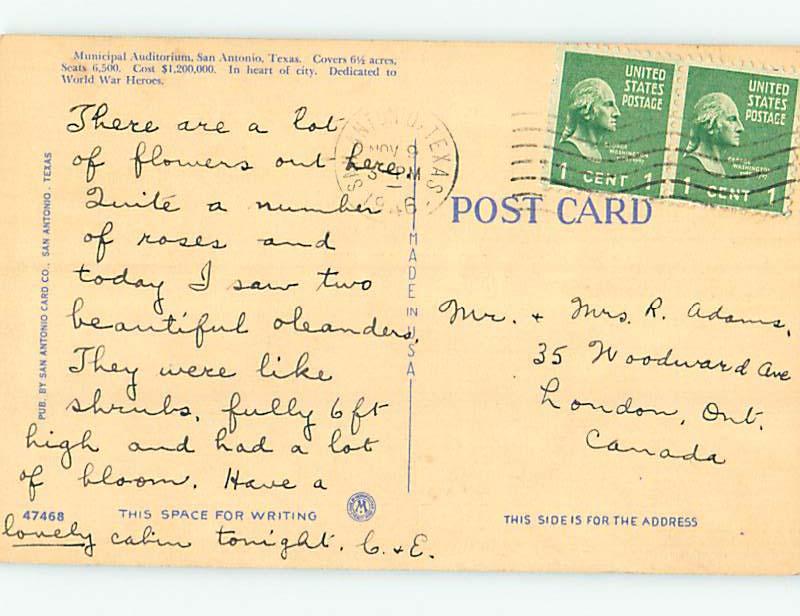 Municipal Auditorium, San Antonio, Texas. Covers 6½ acres,
Seats 6,500. Cost $1,200,000. In heart of city. Dedicated to
World War Heroes.
There are a lot
of flowers out here.
Quite a number
of roses and
today I saw two
beautiful oleanders.
They were like
shrubs, fully 6 ft
high and had a lot
of bloom. Have a
lovely cabin tonight. C. & E.
PUB. BY SAN ANTONIO CARD CO., SAN ANTONIO, TEXAS
47468
THIS SPACE FOR WRITING
M
MADE IN USA
SAN ANTONIO, TEXAS
NOV 9
PM
POST CARD
UNITED
STATES
POSTAGE
GEORGE
WASHINGTON
1 CENT 1
UNITED
STATES
POSTAGE
GEORGE
WASHINGTON
1 CENT 1
Mr. + Mrs. R. Adams,
35 Woodward Ave
London, Ont.
Canada
THIS SIDE IS FOR THE ADDRESS